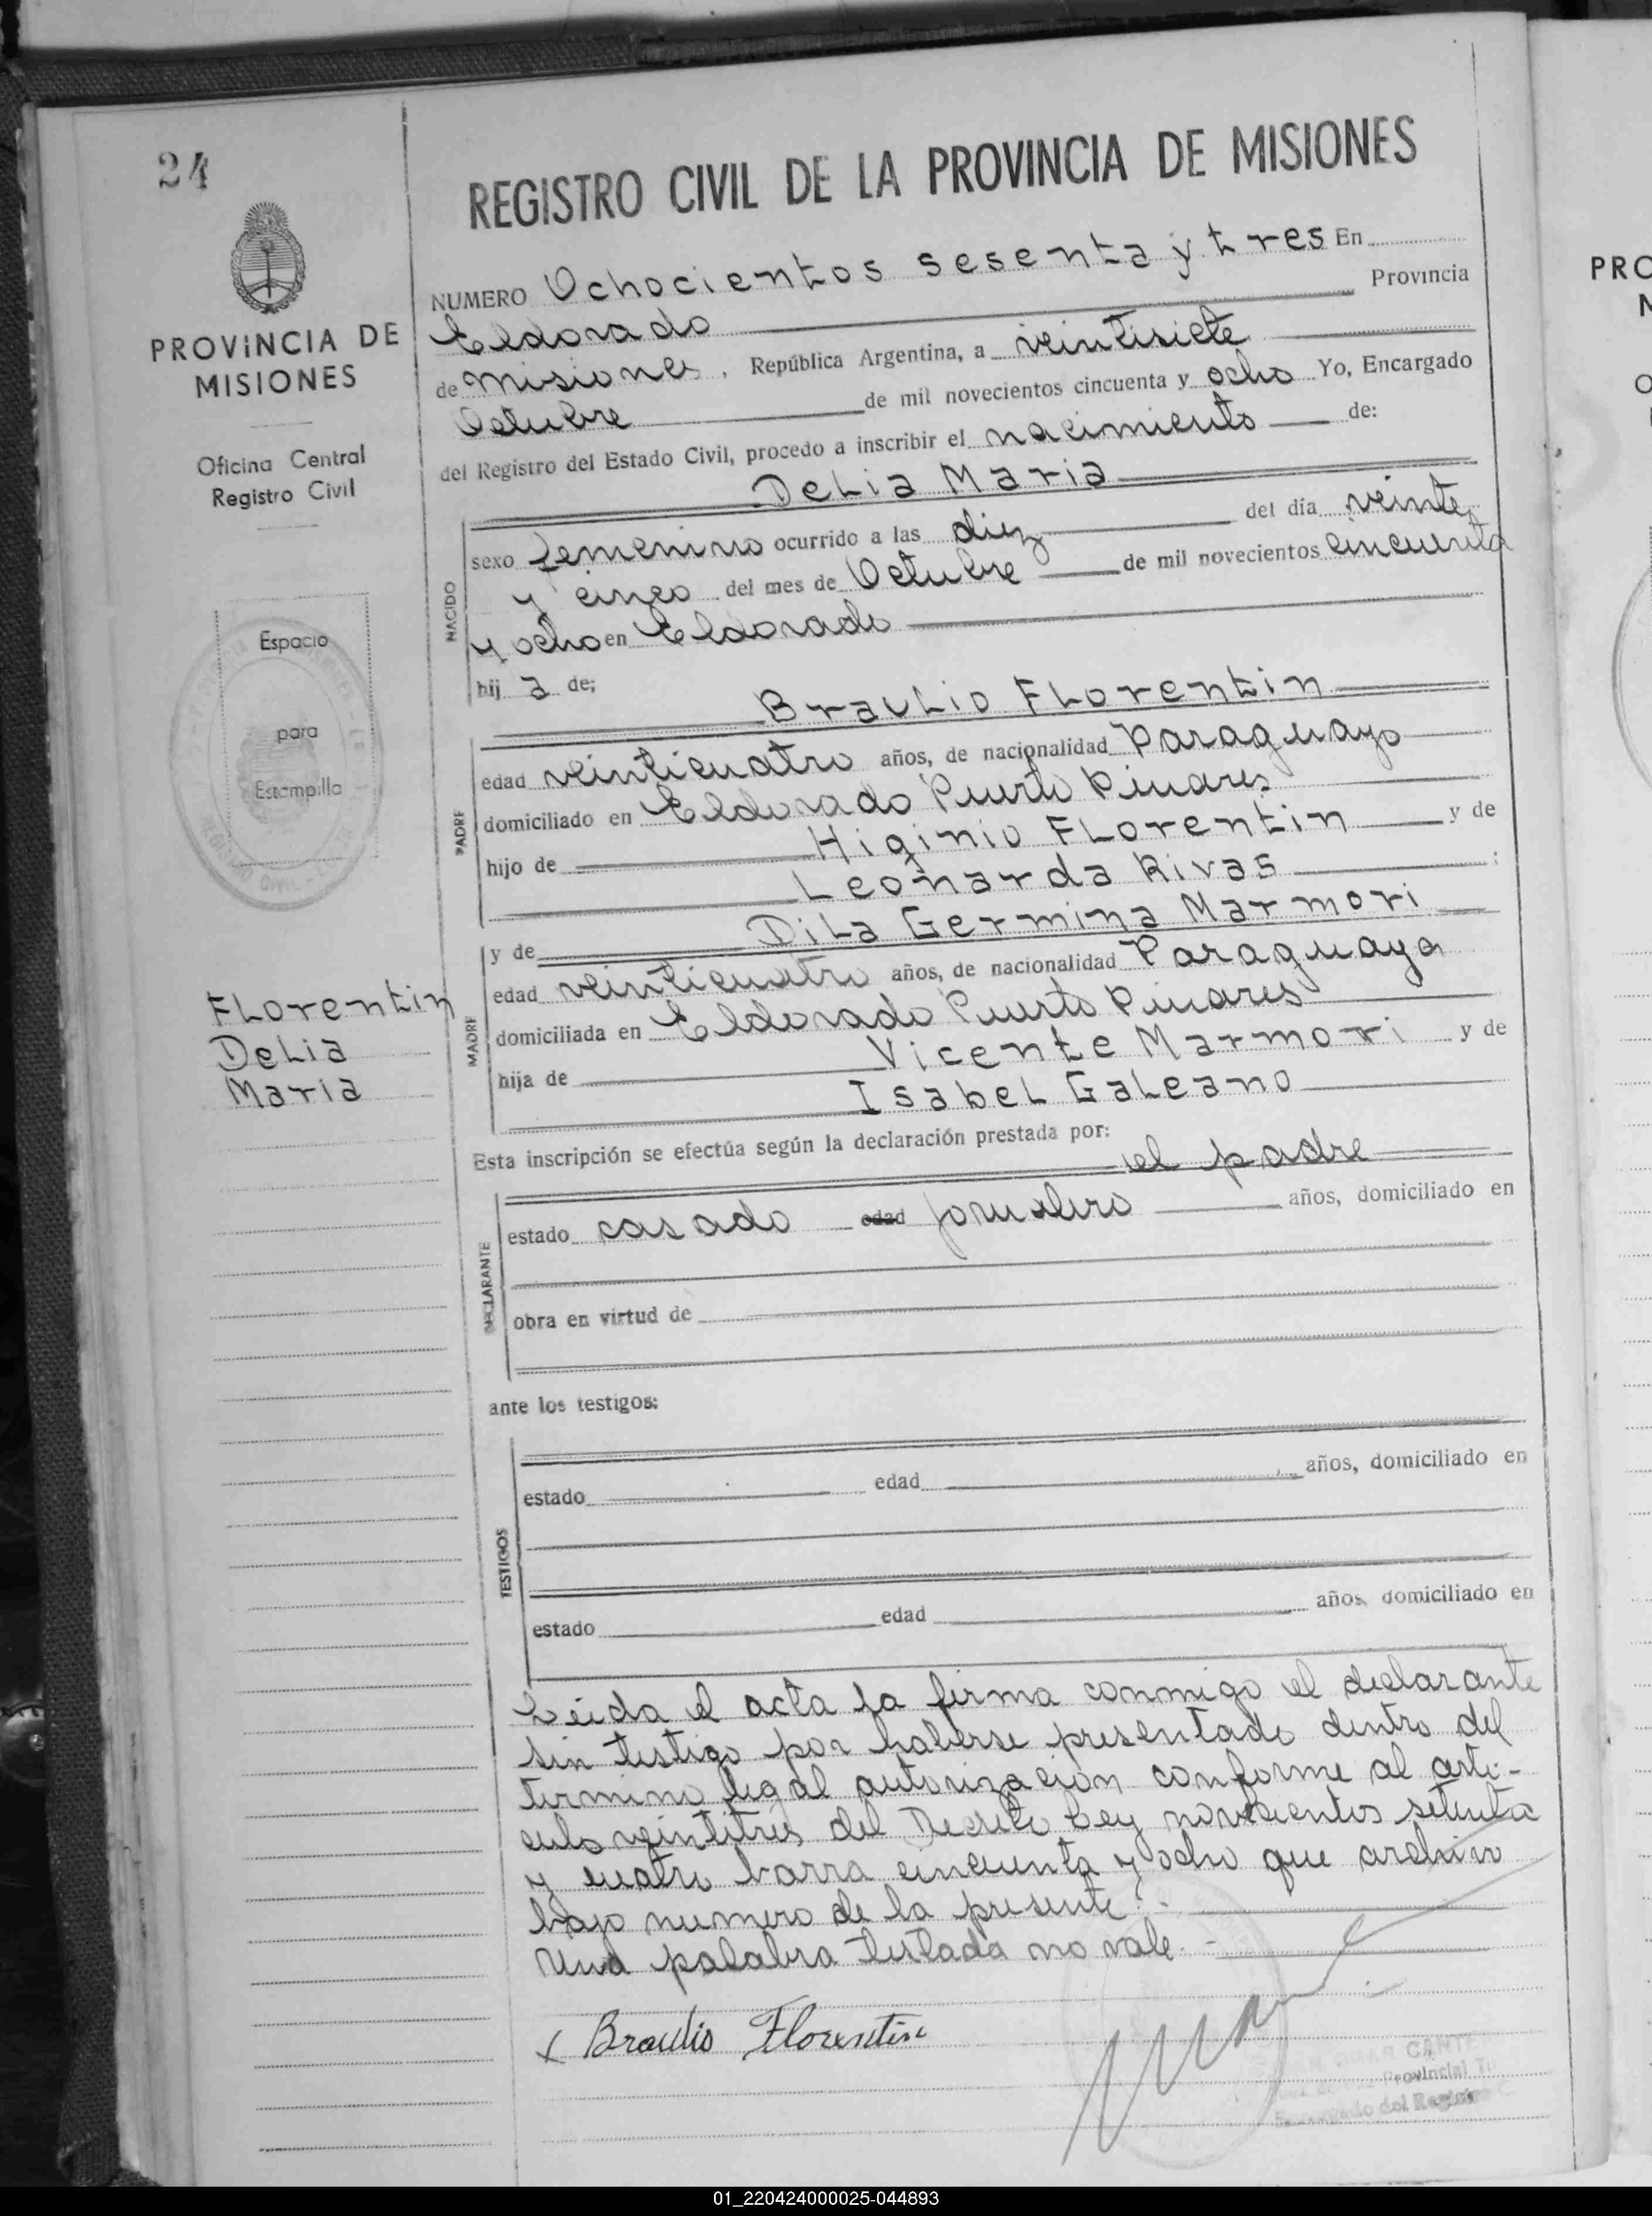 24
PROVINCIA DE
MISIONES
Oficina Central
Registro Civil
Espacio
para
Estampilla
Florentin
Delia
Maria
REGISTRO CIVIL DE LA PROVINCIA DE MISIONES
NUMERO Ochocientos sesenta y tres En
Eldorado Provincia
de Misiones, República Argentina, a veintisiete
Octubre de mil novecientos cincuenta y ocho Yo, Encargado
del Registro del Estado Civil, procedo a inscribir el nacimiento de:
Delia Maria
NACIDO
sexo femenino ocurrido a las diez del día veinte
y cinco del mes de Octubre de mil novecientos cincuenta
y ocho en Eldorado
hij a de;
Braulio Florentin
PADRE
edad veinticuatro años, de nacionalidad Paraguayo
domiciliado en Eldorado Puerto Pinares
hijo de Higinio Florentin y de
Leonarda Rivas ;
y de Dila Germina Marmori
MADRE
edad veinticuatro años, de nacionalidad Paraguaya
domiciliada en Eldorado Puerto Pinares
hija de Vicente Marmori y de
Isabel Galeano
Esta inscripción se efectúa según la declaración prestada por:
el padre
DECLARANTE
estado casado edad jornalero años, domiciliado en
obra en virtud de
ante los testigos:
TESTIGOS
estado edad años, domiciliado en
estado edad años, domiciliado en
Leida el acta la firma conmigo el declarante
sin testigo por haberse presentado dentro del
termino legal autorización conforme al arti-
culo veintitres del Decreto Ley novecientos setenta
y cuatro barra cincuenta y ocho que archivo
bajo numero de la presente.-
Una palabra testada no vale.-
x Braulio Florentin
OMAR CANTE
Provincial
do del Registro
PRO
01_220424000025-044893